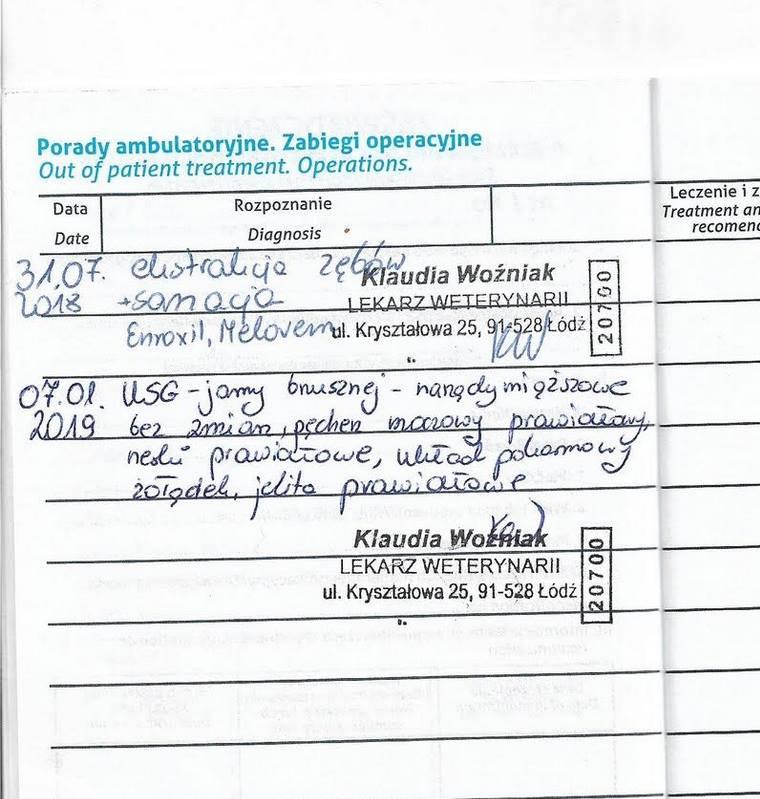 Porady ambulatoryjne. Zabiegi operacyjne
Out of patient treatment. Operations.
Data
Date
Rozpoznanie
Diagnosis
Leczenie i z
Treatment an
recomend
31.07.
2018
ekstrakcja zębów
+sanacja
Enroxil, Melovem
Klaudia Woźniak
LEKARZ WETERYNARII
ul. Kryształowa 25, 91-528 Łódź
20700
07.01.
2019
USG - jamy brzusznej - narządy miąższowe
bez zmian, pęcherz moczowy prawidłowy,
nerki prawidłowe, układ pokarmowy
żołądek, jelita prawidłowe
Klaudia Woźniak
LEKARZ WETERYNARII
ul. Kryształowa 25, 91-528 Łódź
20700